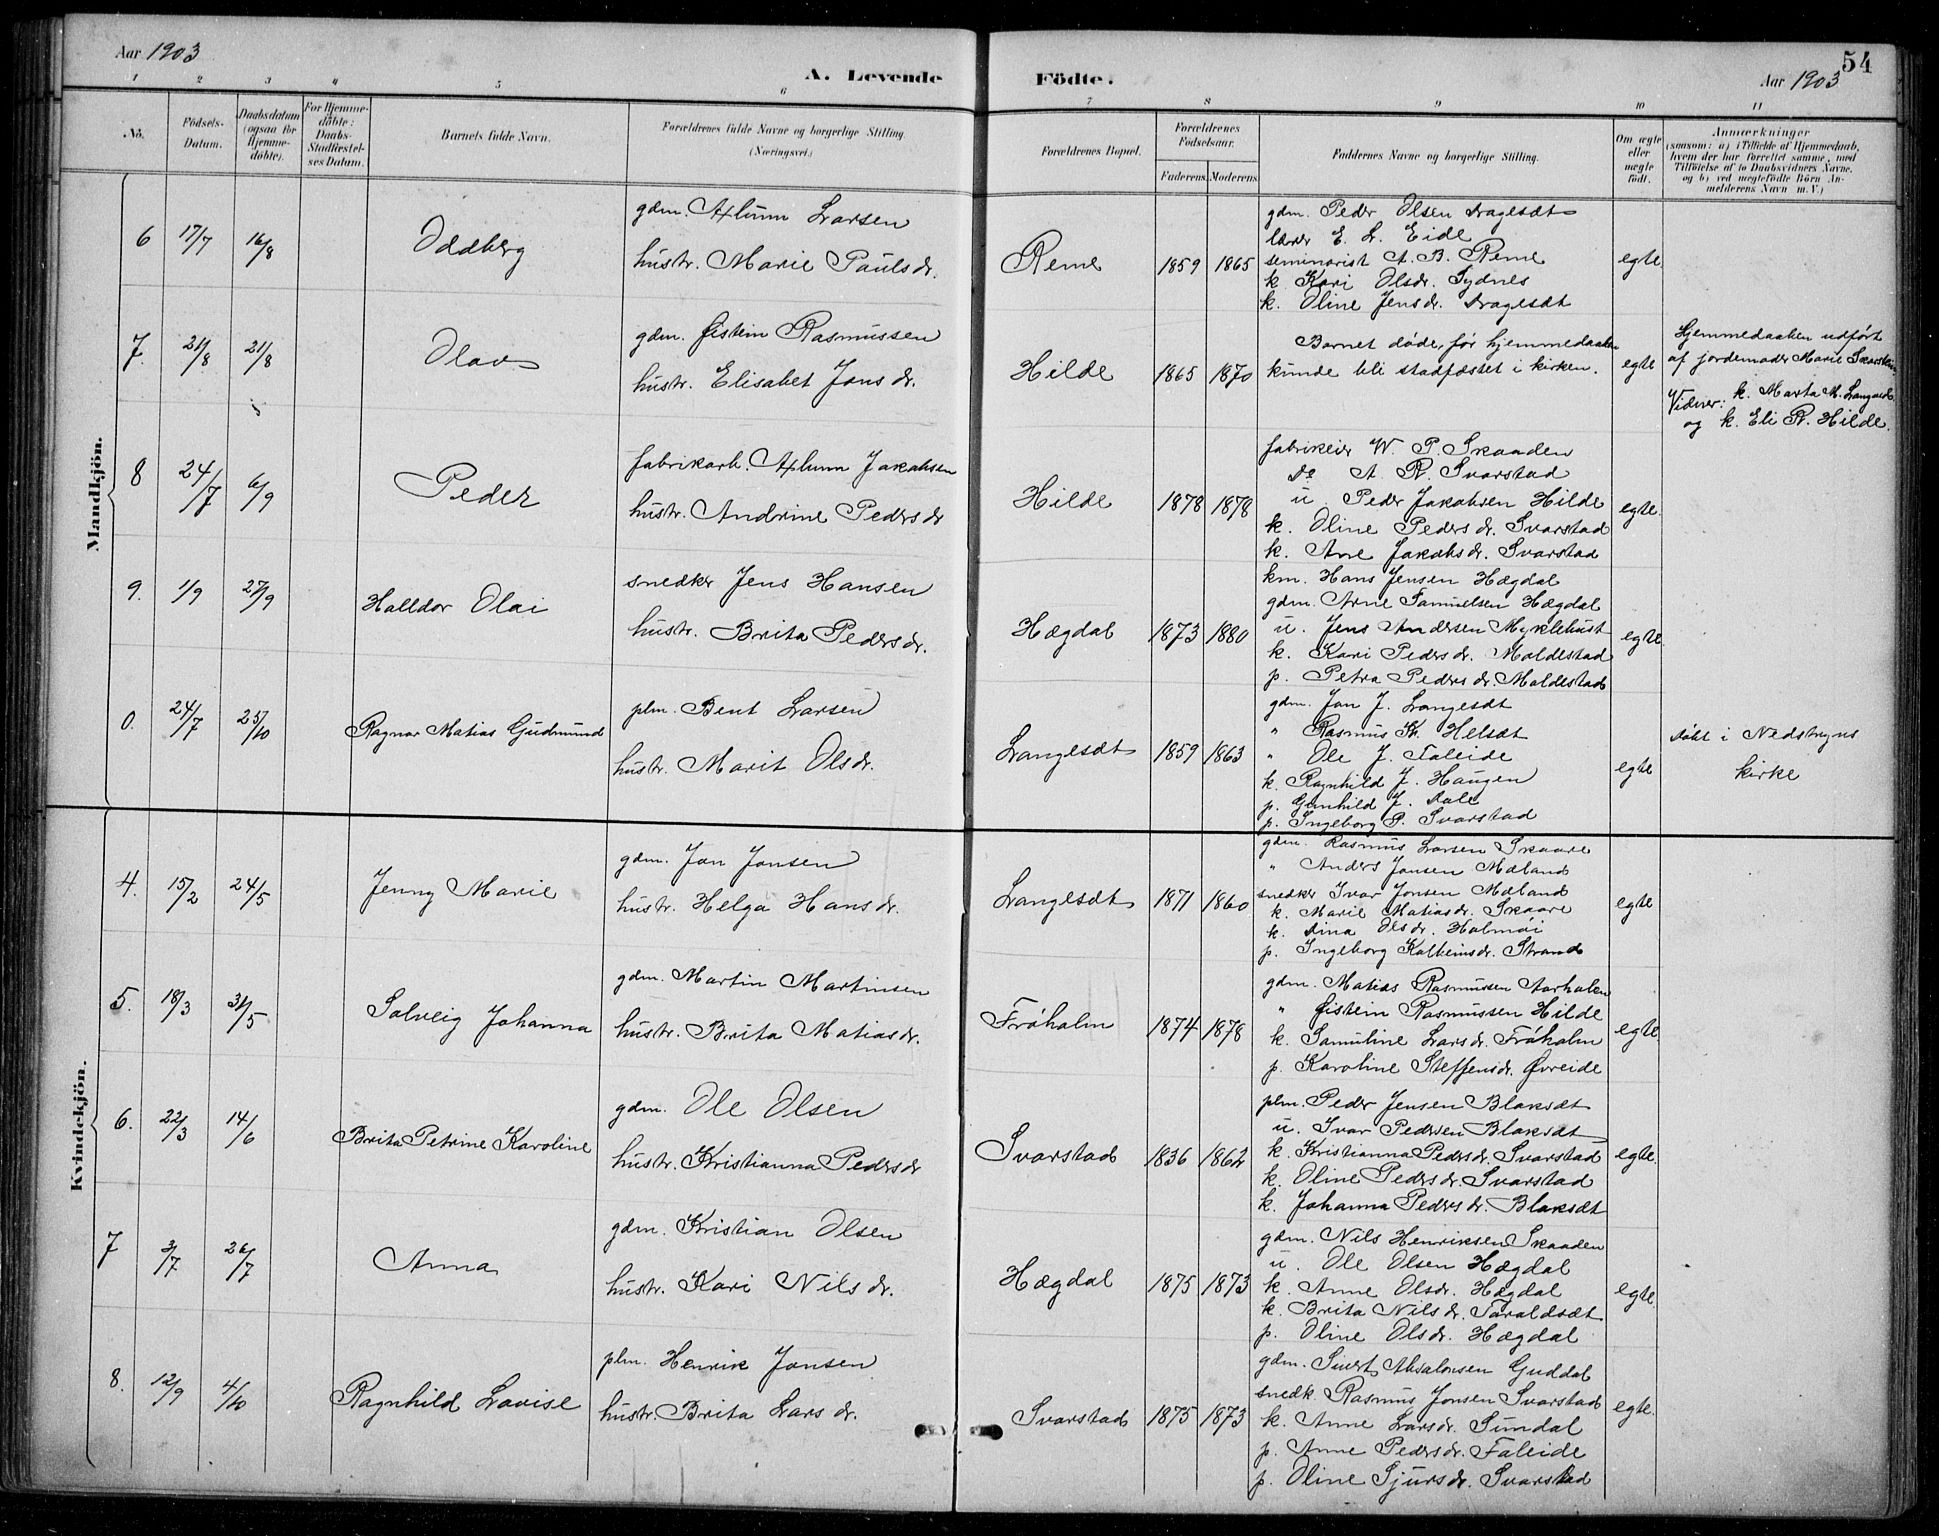 Aar 1903
A. Levende Födte.
54
Aar 1903
1 2 3 4 5 6 7 8 9 10 11
No.
Födsels-Datum.
Daabsdatum (ogsaa for Hjemme-döbte).
For Hjemme-döbte: Daabs-Stadfæstel-ses Datum.
Barnets fulde Navn.
Forældrenes fulde Navne og borgerlige Stilling. (Næringsvei.)
Forældrenes Bopæl.
Forældrenes Födselsaar.
Faderens. Moderens.
Faddernes Navne og borgerlige Stilling.
Om ægte eller uægte födt.
Anmærkninger
(saasom: a) i Tilfælde af Hjemmedaab,
hvem der har forrettet samme, med
Tilföielse af to Daabsvidners Navne.
og b) ved uægtefödte Börn An-
melderens Navn m. V.)
Mandkjön.
6 17/7 16/8 Oddberg
gdm. Axlum Larsen
hustr. Marie Paulsdr.
Reme 1859 1865
gdm. Peder Olsen Dragesæt
lærer E. L. Eide
seminarist A. B. Reme
k. Kari Olsdr. Sydnes
k. Oline Jensdr. Dragesæt
egte
7. 21/8 21/8 Olav
gdm. Øistein Rasmussen
hustr. Elisabet Jonsdr.
Hilde 1865 1870
Barnet døde, før hjemmedaaben
kunde bli stadfæstet i kirken.
egte
Hjemmedaaben udført
af jordemoder Marie Skarstein
Vidner: k. Marta M.
og k. Eli R. Hilde.
8 24/7 6/9 Peder
fabrikarb. Axlum Jakobsen
hustr. Andrine Pedersdr
Hilde 1878 1878
fabrikeier W. P. Skaaden
Do A. R. Svarstad
u. Peder Jakobsen Hilde
k. Oline Pedersdr. Svarstad
k. Ane Jakobsdr. Svarstad
egte
9. 1/9 27/9 Halldor Olai
snedker Jens Hansen
hustr. Brita Pedersdr.
Hægdal 1873 1880
km. Hans Jensen Hægdal
gdm. Arne Samuelsen Hægdal
u. Jens Andersen Myklebust
k. Kari Pedersdr. Moldestad
p. Petra Pedersdr. Moldestad
egte
0. 24/7 25/10 Ragnar Matias Gudmund
plm. Bent Larsen
hustr. Marit Olsdr.
Langesæt 1859 1863
gdm. Jon J. Langesæt
" Rasmus K. Helsæt
" Ole J. Faleide
k. Ragnhild J. Haugen
p. Gunhild J. Dale
p. Ingeborg P. Svarstad
egte
døbt i Nedstryns
kirke
Kvindekjön.
4. 15/2 24/5 Jenny Marie
gdm. Jon Jonsen
hustr. Helga Hansdr.
Langesæt 1871 1860
gdm. Rasmus Larsen Skaare
" Anders Jonsen Mæland
snedker Ivar Jonsen Mæland
k. Marie Matiasdr. Skaare
k. Dina Olsdr. Holmøi
p. Ingeborg Kolbeinsdr. Strand
egte
5. 18/3 31/5 Solveig Johanna
gdm. Martin Martinsen
hustr. Brita Matiasdr.
Frøholm 1874 1878
gdm. Matias Rasmussen Aarholen
" Øistein Rasmussen Hilde
k. Samuline Larsdr. Frøholm
p. Karoline Steffensdr. Øvreide
egte
6. 22/3 14/6 Brita Petrine Karoline
gdm. Ole Olsen
hustr. Kristianna Pedersdr
Svarstad 1836 1862
plm. Peder Jensen Blaksæt
u. Ivar Pedersen Blaksæt
k. Kristianna Pedersdr. Svarstad
k. Oline Pedersdr. Svarstad
k. Johanna Pedersdr. Blaksæt
egte.
7 3/7 26/7 Anna
gdm. Kristian Olsen
hustr. Kari Nilsdr.
Hægdal 1875 1873
gdm. Nils Henriksen Skaaden
u. Ole Olsen Hægdal
k. Anne Olsdr. Hægdal
k. Brita Nilsdr. Taraldsæt
p. Oline Olsdr. Hægdal
egte.
8. 12/9 4/10 Ragnhild Lovise
plm. Henrik Jonsen
hustr. Brita Larsdr.
Svarstad 1875 1873
gdm. Sivert Absalonsen Guddal
snedk. Rasmus Jonsen Svarstad
k. Anne Larsdr. Sundal
p. Anne Pedersdr. Faleide
p. Oline Sjursdr. Svarstad
egte.